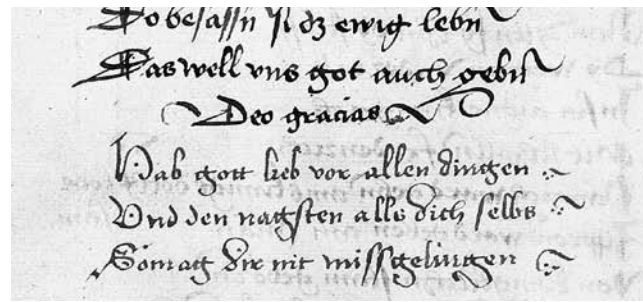 Do besassn si dz ewig lebn
Das well vns got auch gebn
Deo gracias
Hab gott lieb vor allen dingen
Vnd den nagsten alls dich selbs
So mag dir nit missgelingen